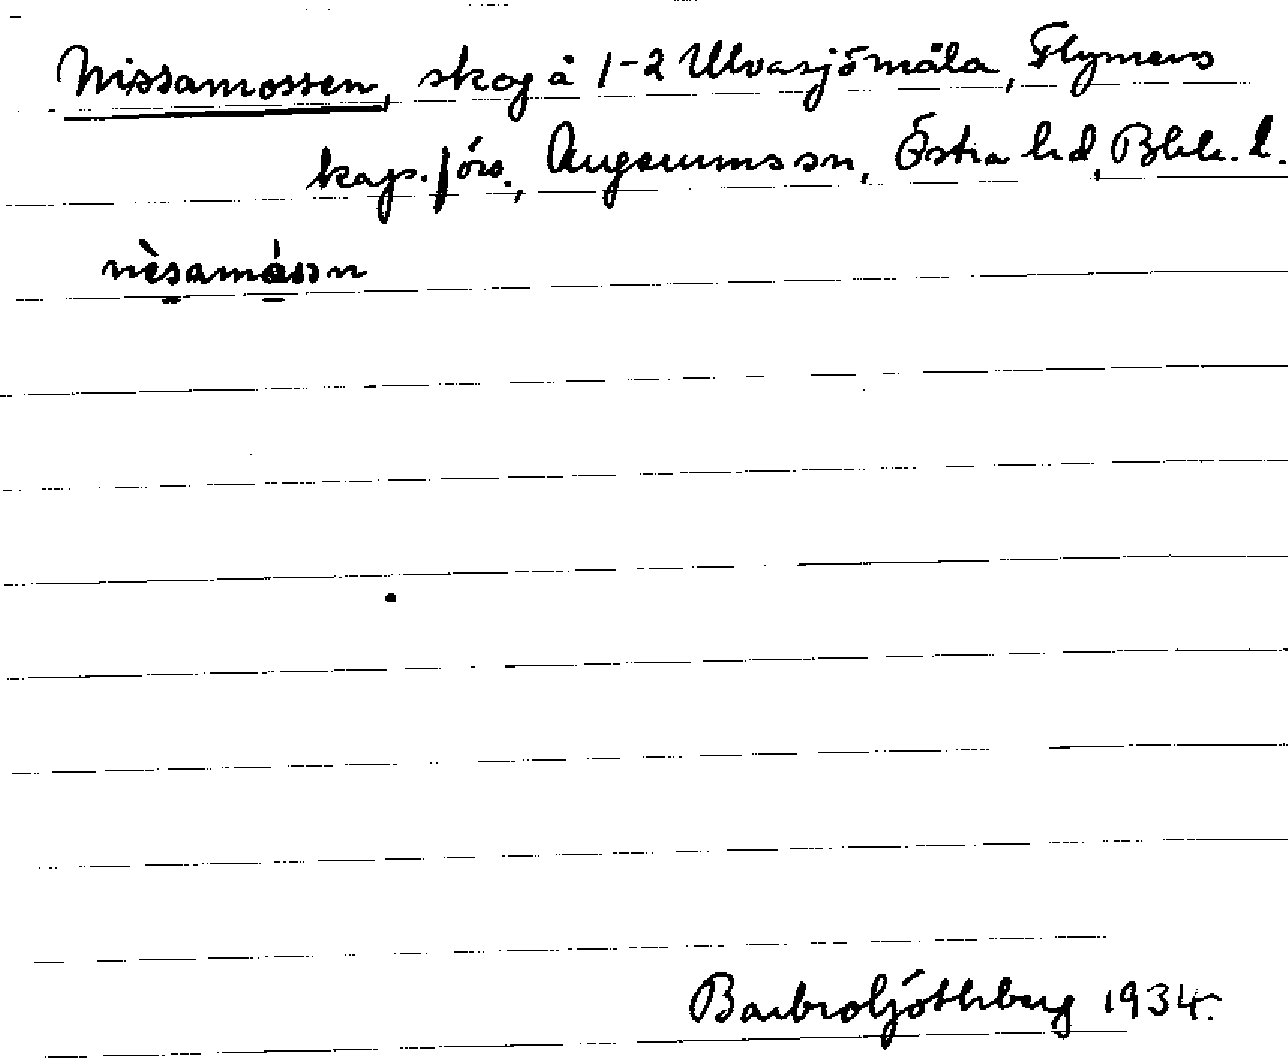 Nissamossen, skog å 1-2 Ulvasjömåla, Flymens
kap. förs., Augerums sn, Östra hd, Blek. l.
nèsamássn
Barbro Ljöthberg 1934.